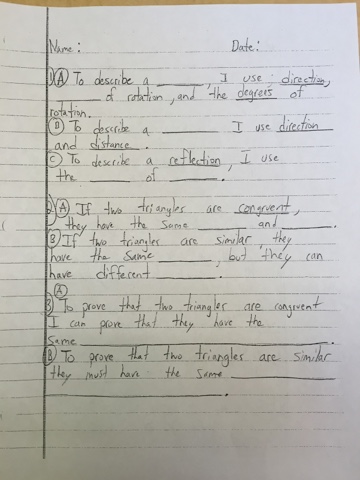 Name: Date:
1) A To describe a ______, I use: direction,
______ of rotation, and the degrees of
rotation.
B To describe a ______ I use direction
and distance.
C To describe a reflection, I use
the ______ of ______.
2) A If two triangles are congruent,
they have the same ______ and ______.
B If two triangles are similar, they
have the same ______, but they can
have different ______.
A
3 To prove that two triangles are congruent
I can prove that they have the
same ______.
B To prove that two triangles are similar
they must have the same ______
______.